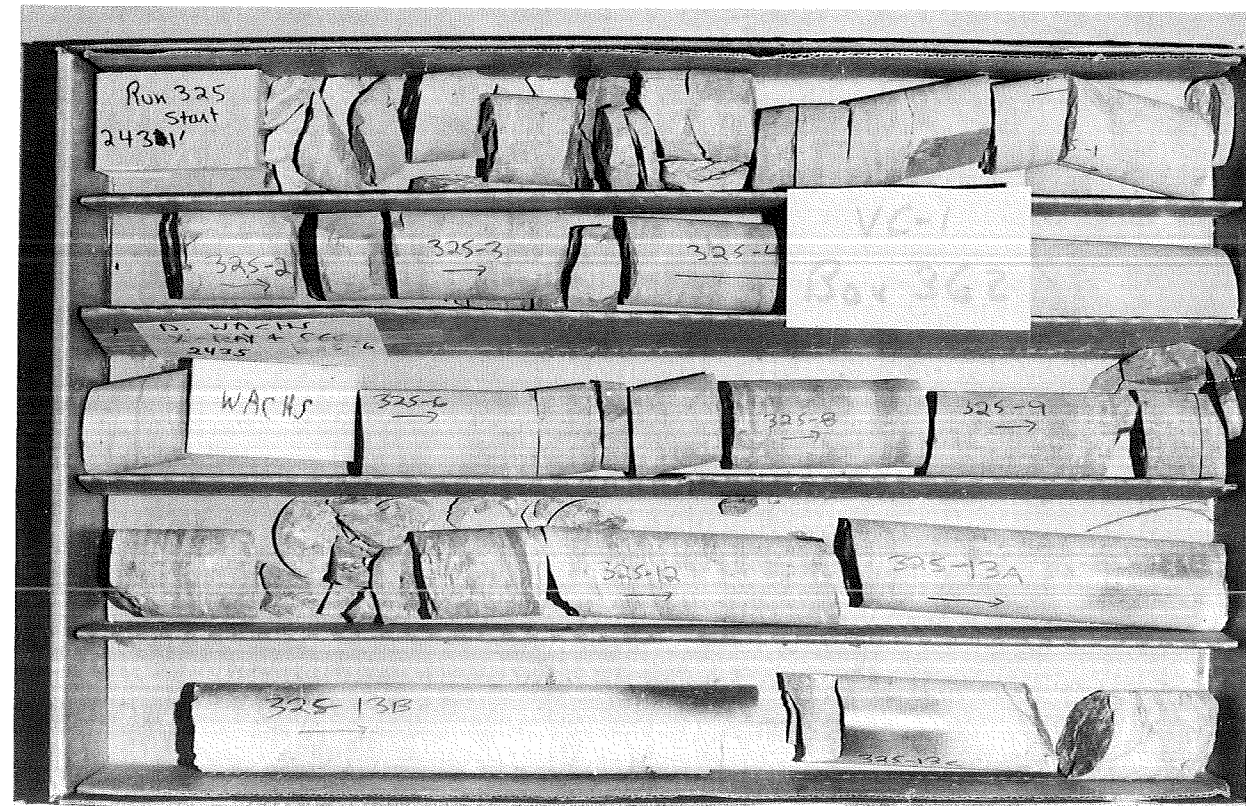 Run 325
Start
2431'
-1
325-2
325-3
325-4
VC-1
Box 362
D. WACHS
X RAY +
2435
WACHS
325-6
325-8
325-9
325-12
325-13A
325-13B
325-13C